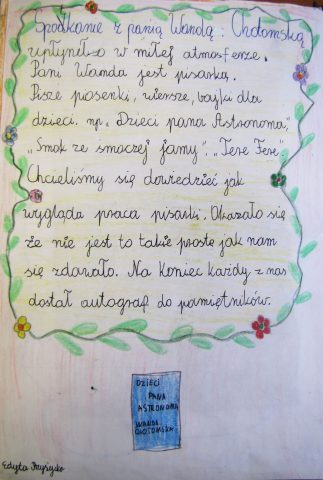 Spotkanie z panią Wandą Chotomską
upłynęło w miłej atmosferze.
Pani Wanda jest pisarką.
Pisze piosenki, wiersze, bajki dla
dzieci np. „Dzieci pana Astronoma",
„Smok ze smoczej jamy", „Tere Fere".
Chcieliśmy się dowiedzieć jak
wygląda praca pisarki. Okazało się
że nie jest to takie proste jak nam
się zdawało. Na koniec każdy z nas
dostał autograf do pamiętników.
DZIECI
PANA
ASTRONOMA
WANDA
CHOTOMSKA
Edyta